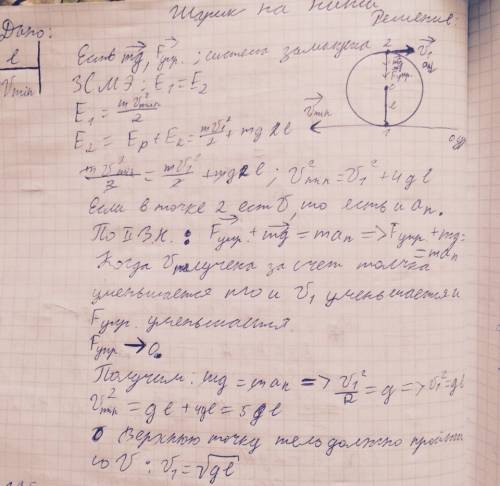 Шарик на нити
Дано:
Решение:
l
Vmin
Есть mg, Fупр.; система замкнута
ЗСМЭ: E₁ = E₂
E₁ = mVmin²/2
E₂ = Eр + E₂ = mV₁²/2 + mg2l
mVmin²/2 = mV₁²/2 + mg2l; V²min = V₁² + 4gl
Если в точке 2 есть V, то есть и aп.
По II З.Н.: Fупр. + mg = maп => Fупр + mg =
= maп
Когда V получена за счет толчка
уменьшается то и V₁ уменьшается и
Fупр. уменьшается.
Fупр → 0.
Получим: mg = maп => V₁²/R = g => V₁² = gl
V²min = gl + 4gl = 5gl
Верхнюю точку тело должно пройти
со V: V₁ = √gl
2
V₁
Fупр.
l
Vmin
1